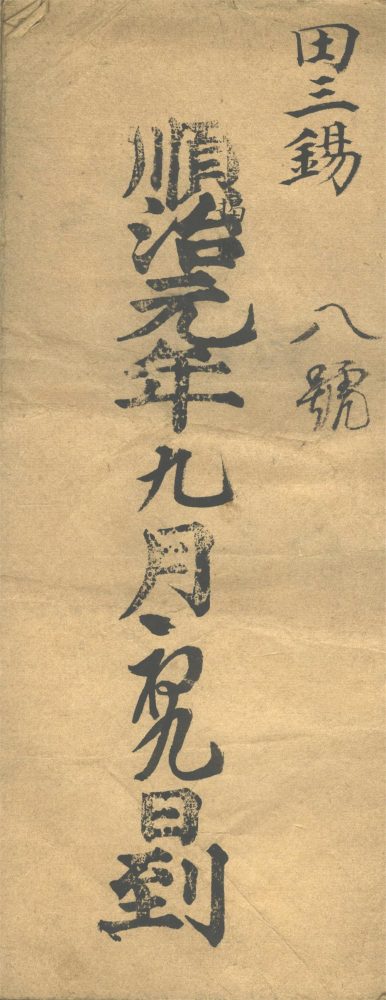 田三錫
八號
順治元年九月初九日到